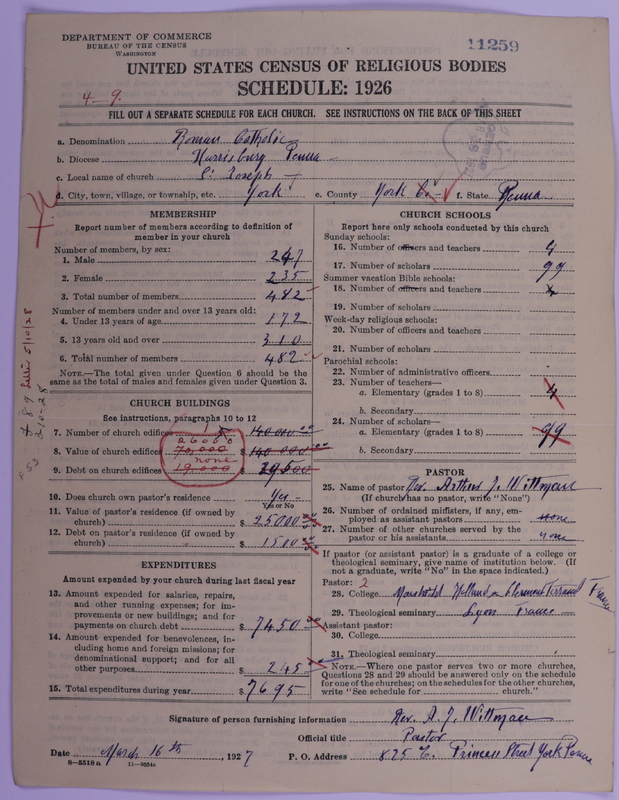 DEPARTMENT OF COMMERCE
BUREAU OF THE CENSUS
WASHINGTON
11259
UNITED STATES CENSUS OF RELIGIOUS BODIES
SCHEDULE: 1926
4-9.
FILL OUT A SEPARATE SCHEDULE FOR EACH CHURCH. SEE INSTRUCTIONS ON THE BACK OF THIS SHEET
a. Denomination Roman Catholic
b. Diocese Harrisburg Penna
c. Local name of church St Joseph
d. City, town, village, or township, etc. York e. County York Co. f. State Penna
MEMBERSHIP
Report number of members according to definition of member in your church
Number of members, by sex:
1. Male 247
2. Female 235
3. Total number of members 482
Number of members under and over 13 years old:
4. Under 13 years of age 172
5. 13 years old and over 310
6. Total number of members 482
NOTE.—The total given under Question 6 should be the same as the total of males and females given under Question 3.
CHURCH BUILDINGS
See instructions, paragraphs 10 to 12
7. Number of church edifices 1 140 000 00
8. Value of church edifices 70,000 $ 140 000 00
9. Debt on church edifices none 19,000 $
10. Does church own pastor's residence Yes
Yes or No
11. Value of pastor's residence (if owned by church) $ 25000
12. Debt on pastor's residence (if owned by church) $ 1500
EXPENDITURES
Amount expended by your church during last fiscal year
13. Amount expended for salaries, repairs, and other running expenses; for improvements or new buildings; and for payments on church debt $ 7450
14. Amount expended for benevolences, including home and foreign missions; for denominational support; and for all other purposes $ 245
15. Total expenditures during year $ 7695
CHURCH SCHOOLS
Report here only schools conducted by this church
Sunday schools:
16. Number of officers and teachers 4
17. Number of scholars 99
Summer vacation Bible schools:
18. Number of officers and teachers 4
19. Number of scholars
Week-day religious schools:
20. Number of officers and teachers
21. Number of scholars
Parochial schools:
22. Number of administrative officers
23. Number of teachers—
a. Elementary (grades 1 to 8) 4
b. Secondary
24. Number of scholars—
a. Elementary (grades 1 to 8) 99
b. Secondary
PASTOR
25. Name of pastor Rev. Arthur J. Wittman
(If church has no pastor, write "None")
26. Number of ordained ministers, if any, employed as assistant pastors none
27. Number of other churches served by the pastor or his assistants none
If pastor (or assistant pastor) is a graduate of a college or theological seminary, give name of institution below. (If not a graduate, write "No" in the space indicated.)
Pastor: 2
28. College Holland & Clermont Ferrand France
29. Theological seminary Lyon France
Assistant pastor:
30. College
31. Theological seminary
NOTE.—Where one pastor serves two or more churches, Questions 28 and 29 should be answered only on the schedule for one of the churches; on the schedules for the other churches, write "See schedule for church."
Signature of person furnishing information Rev. A. J. Wittman
Official title Pastor
Date March 16th, 1927 P. O. Address 825 E. Princess Street York Penna
8—5518a 11—9034a